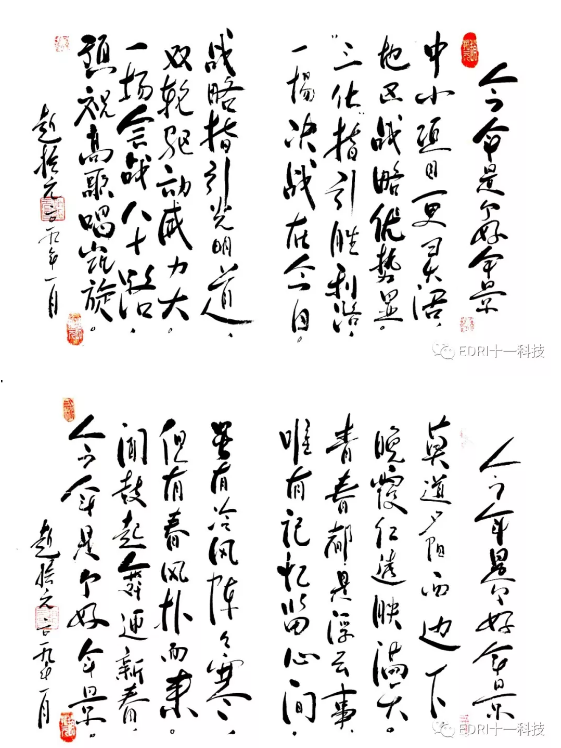 今年是个好年景
中小项目更灵活，
地区战略优势显。
“三化”指引胜利路，
一场决战在今日。
战略指引光明道，
双轮驱动威力大。
一场会战八十路，
预祝高歌唱凯旋。
赵振元二〇一九年一月
EDRI十一科技
今年是个好年景
莫道夕阳西边下
晚霞红遍映满天。
青春都是浮云事，
唯有记忆留心间。
虽有冷风阵阵寒，
但有春风扑面来。
闻鼓起舞迎新春，
今年是个好年景。
赵振元二〇一九年一月
EDRI十一科技